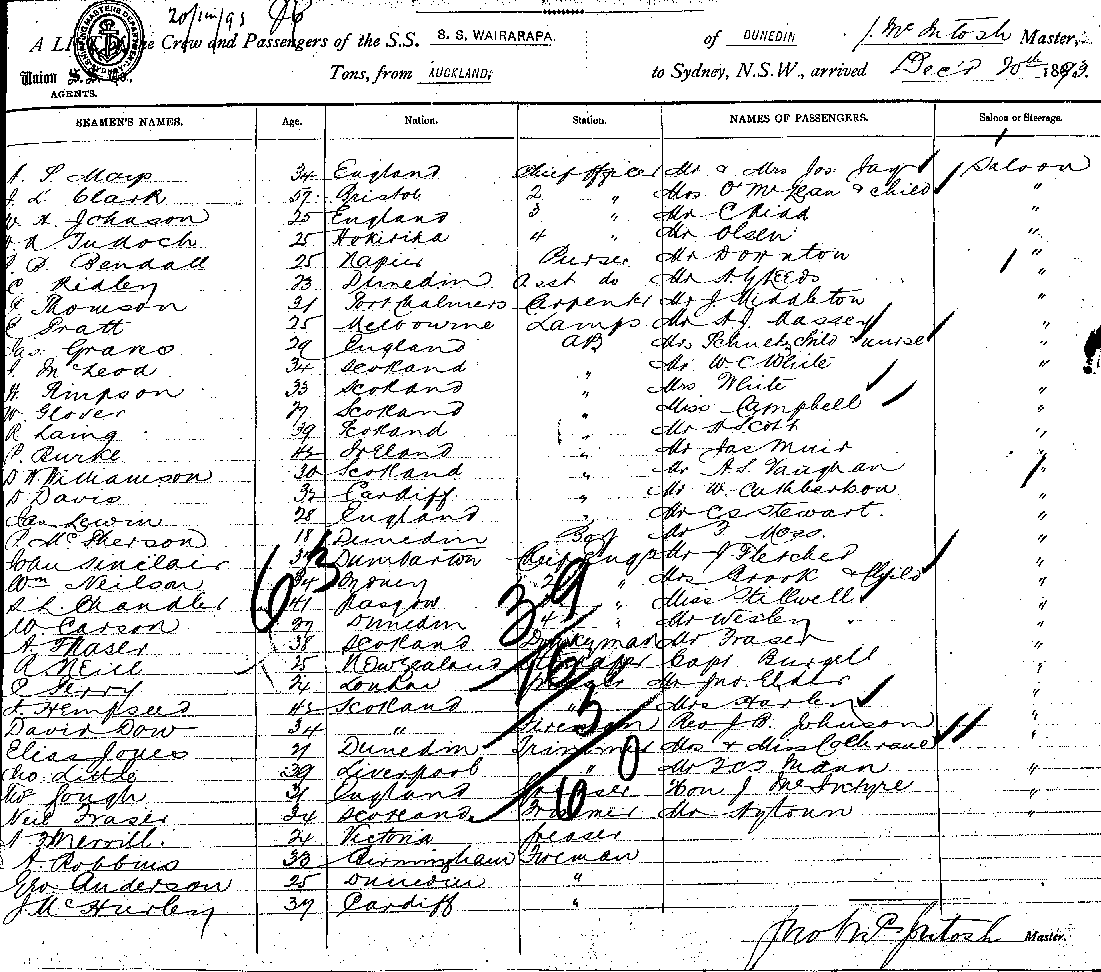 20/12/93
A LIST of the Crew and Passengers of the S.S. S. S. WAIRARAPA. of DUNEDIN J. McIntosh Master,
Union S.S. Co. AGENTS. Tons, from AUCKLAND; to Sydney, N.S.W., arrived Dec'r 20th 1893.
SEAMEN'S NAMES. Age. Nation. Station. NAMES OF PASSENGERS. Saloon or Steerage.
34 England Chief Officer Mr & Mrs Jos Jay Saloon
J L Clark 57 Bristol 2 " Mrs O McLean & child "
W A Johnson 25 England 3 " Mr C Kidd "
25 Hokitika 4 " Mr Olsen "
Bendall 25 Napier Purser Mr Dornton "
C Ridley 23 Dunedin Asst do Mr "
Thomson 31 Port Chalmers Carpenter Mr J Middleton "
Pratt 25 Melbourne Lamps Mr A J Massey "
Jas. Grans 29 England AB Mrs child & nurse "
McLeod 34 Scotland " Mr W C White "
H. Simpson 33 Scotland " Mrs White "
W Glover 27 Scotland " Miss Campbell "
R Laing 39 Scotland " Mr A Scott "
P. Burke 42 Ireland " Mr Jas Muir "
D W Williamson 30 Scotland " Mr A. S. Vaughan "
D Davis 32 Cardiff " Mr W. Cuthbertson "
Jas Lewin 28 England " Mr C S Stewart. "
P McPherson 18 Dunedin Boy Mr F Moss. "
John Sinclair Dumbarton Chief Engr Mr J Fletcher "
Wm Neilson 34 Sydney 2 " Mrs Brook & Child "
Chandler 41 Glasgow " Miss Stillwell "
W. Carson 27 Dunedin 4 " Mr Wesley "
A. Fraser 38 Scotland Donkeyman Mr Fraser "
A Neill 25 New Zealand Storekeeper Capt Burgell "
Perry 24 London Greaser Mr Jno. Elder "
Hempseed 42 Scotland " Mrs Harley "
David Dow 34 " Fireman Rev J B. Johnson "
Elias Jones 21 Dunedin Trimmer Mrs & Miss Cochrane "
Geo. Little 39 Liverpool " Mr Mann "
Gough 31 England Greaser Hon J McIntyre "
Neil Fraser 34 Scotland Trimmer Mr Aytoun "
Merrill. 24 Victoria Greaser
A. Robbins 33 Birmingham Fireman
Geo Anderson 25 Dunedin "
J McHurley 37 Cardiff "
63
39
16
5
60
Jno McIntosh Master.